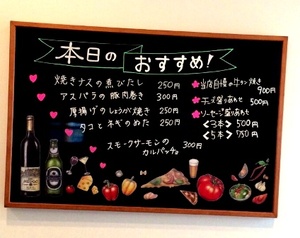 本日の
おすすめ!
焼きナスの煮びたし 250円
アスパラの豚肉巻き 300円
厚揚げのしょうが焼き 250円
タコとネギのぬた 250円
スモークサーモンの
カルパッチョ 300円
当店自慢の牛タン焼き
900円
チーズ盛り合わせ
500円
ソーセージ盛り合わせ
<3本> 500円
<5本> 750円